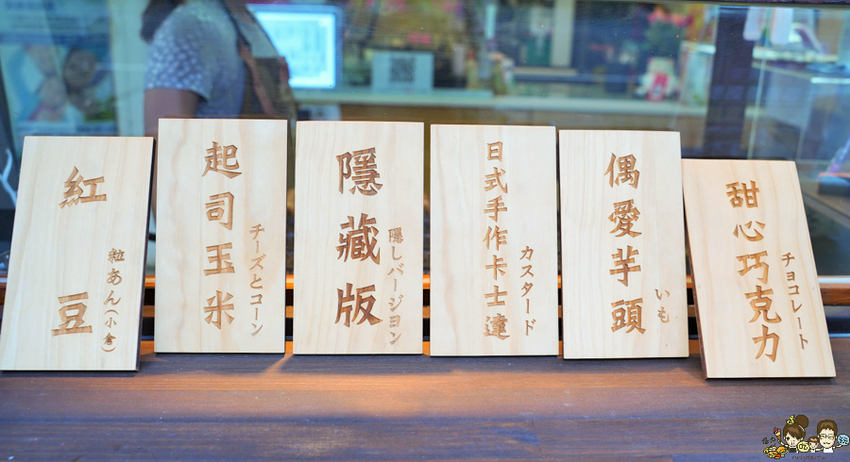 紅豆
粒あん(小倉)
起司玉米
チーズとコーン
隱藏版
隠しバージョン
日式手作卡士達
カスタード
偶愛芋頭
いも
甜心巧克力
チョコレート